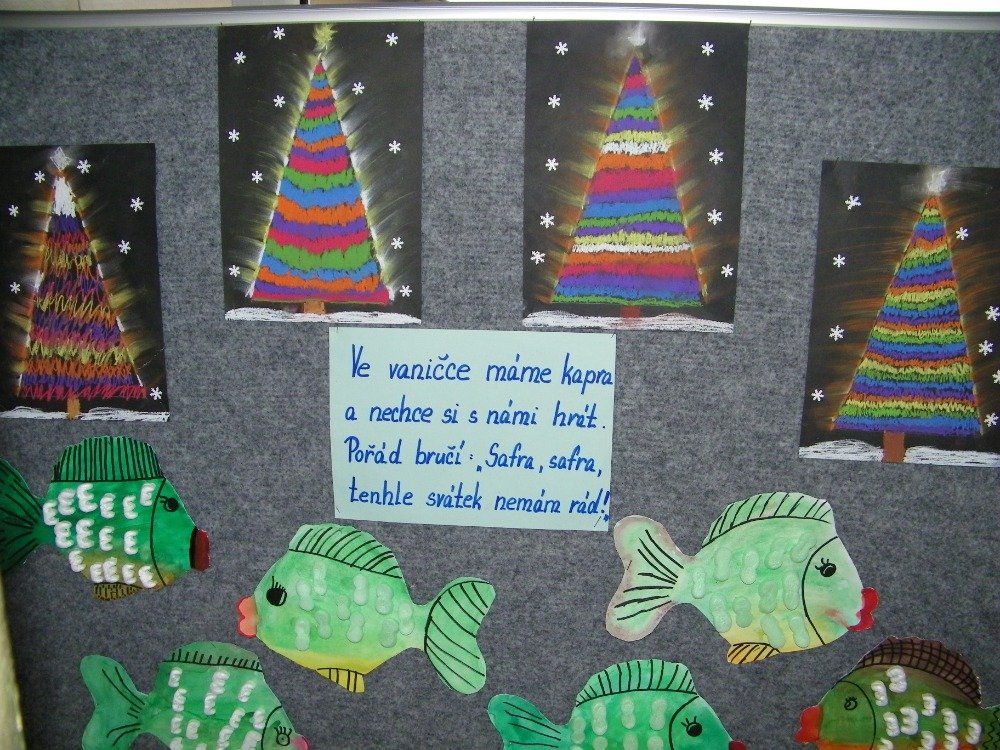 Ve vaničce máme kapra
a nechce si s námi hrát.
Pořád bručí: „Safra, safra,
tenhle svátek nemám rád!"